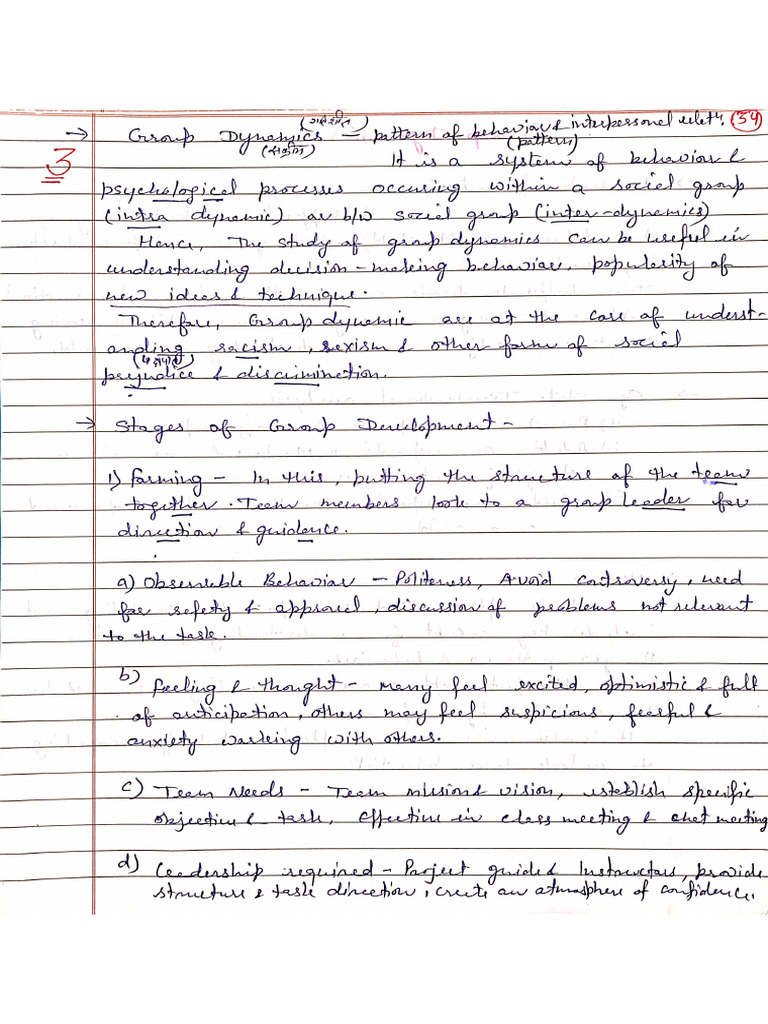 (गतिशील)
→ Group Dynamics — pattern of behavior & interpersonal relatn. (34)
(pattern)
3 It is a system of behavior &
psychological processes occuring within a social group
(intra dynamic) or b/w social group (inter-dynamics)
Hence, The study of group dynamics can be useful in
understanding decision-making behavior, popularity of
new ideas & technique.
Therefore, Group dynamic are at the core of underst-
anding racism, sexism & other form of social
prejudice & discrimination.
→ Stages of Group Development -
1) forming - In this, putting the structure of the team
together. Team members look to a group leader for
direction & guidence.
a) Observable Behavior - Politeness, Avoid controversy, need
for safety & approval, discussion of problems not relevant
to the task.
b) feeling & thought - many feel excited, optimistic & full
of anticipation, others may feel suspicious, fearful &
anxiety working with others.
c) Team Needs - Team mission & vision, establish specific
objective & task, Effective in class meeting & chat meeting
d) Leadership required - Project guide & Instructors, provide
structure & task direction, create an atmosphere of confidence.